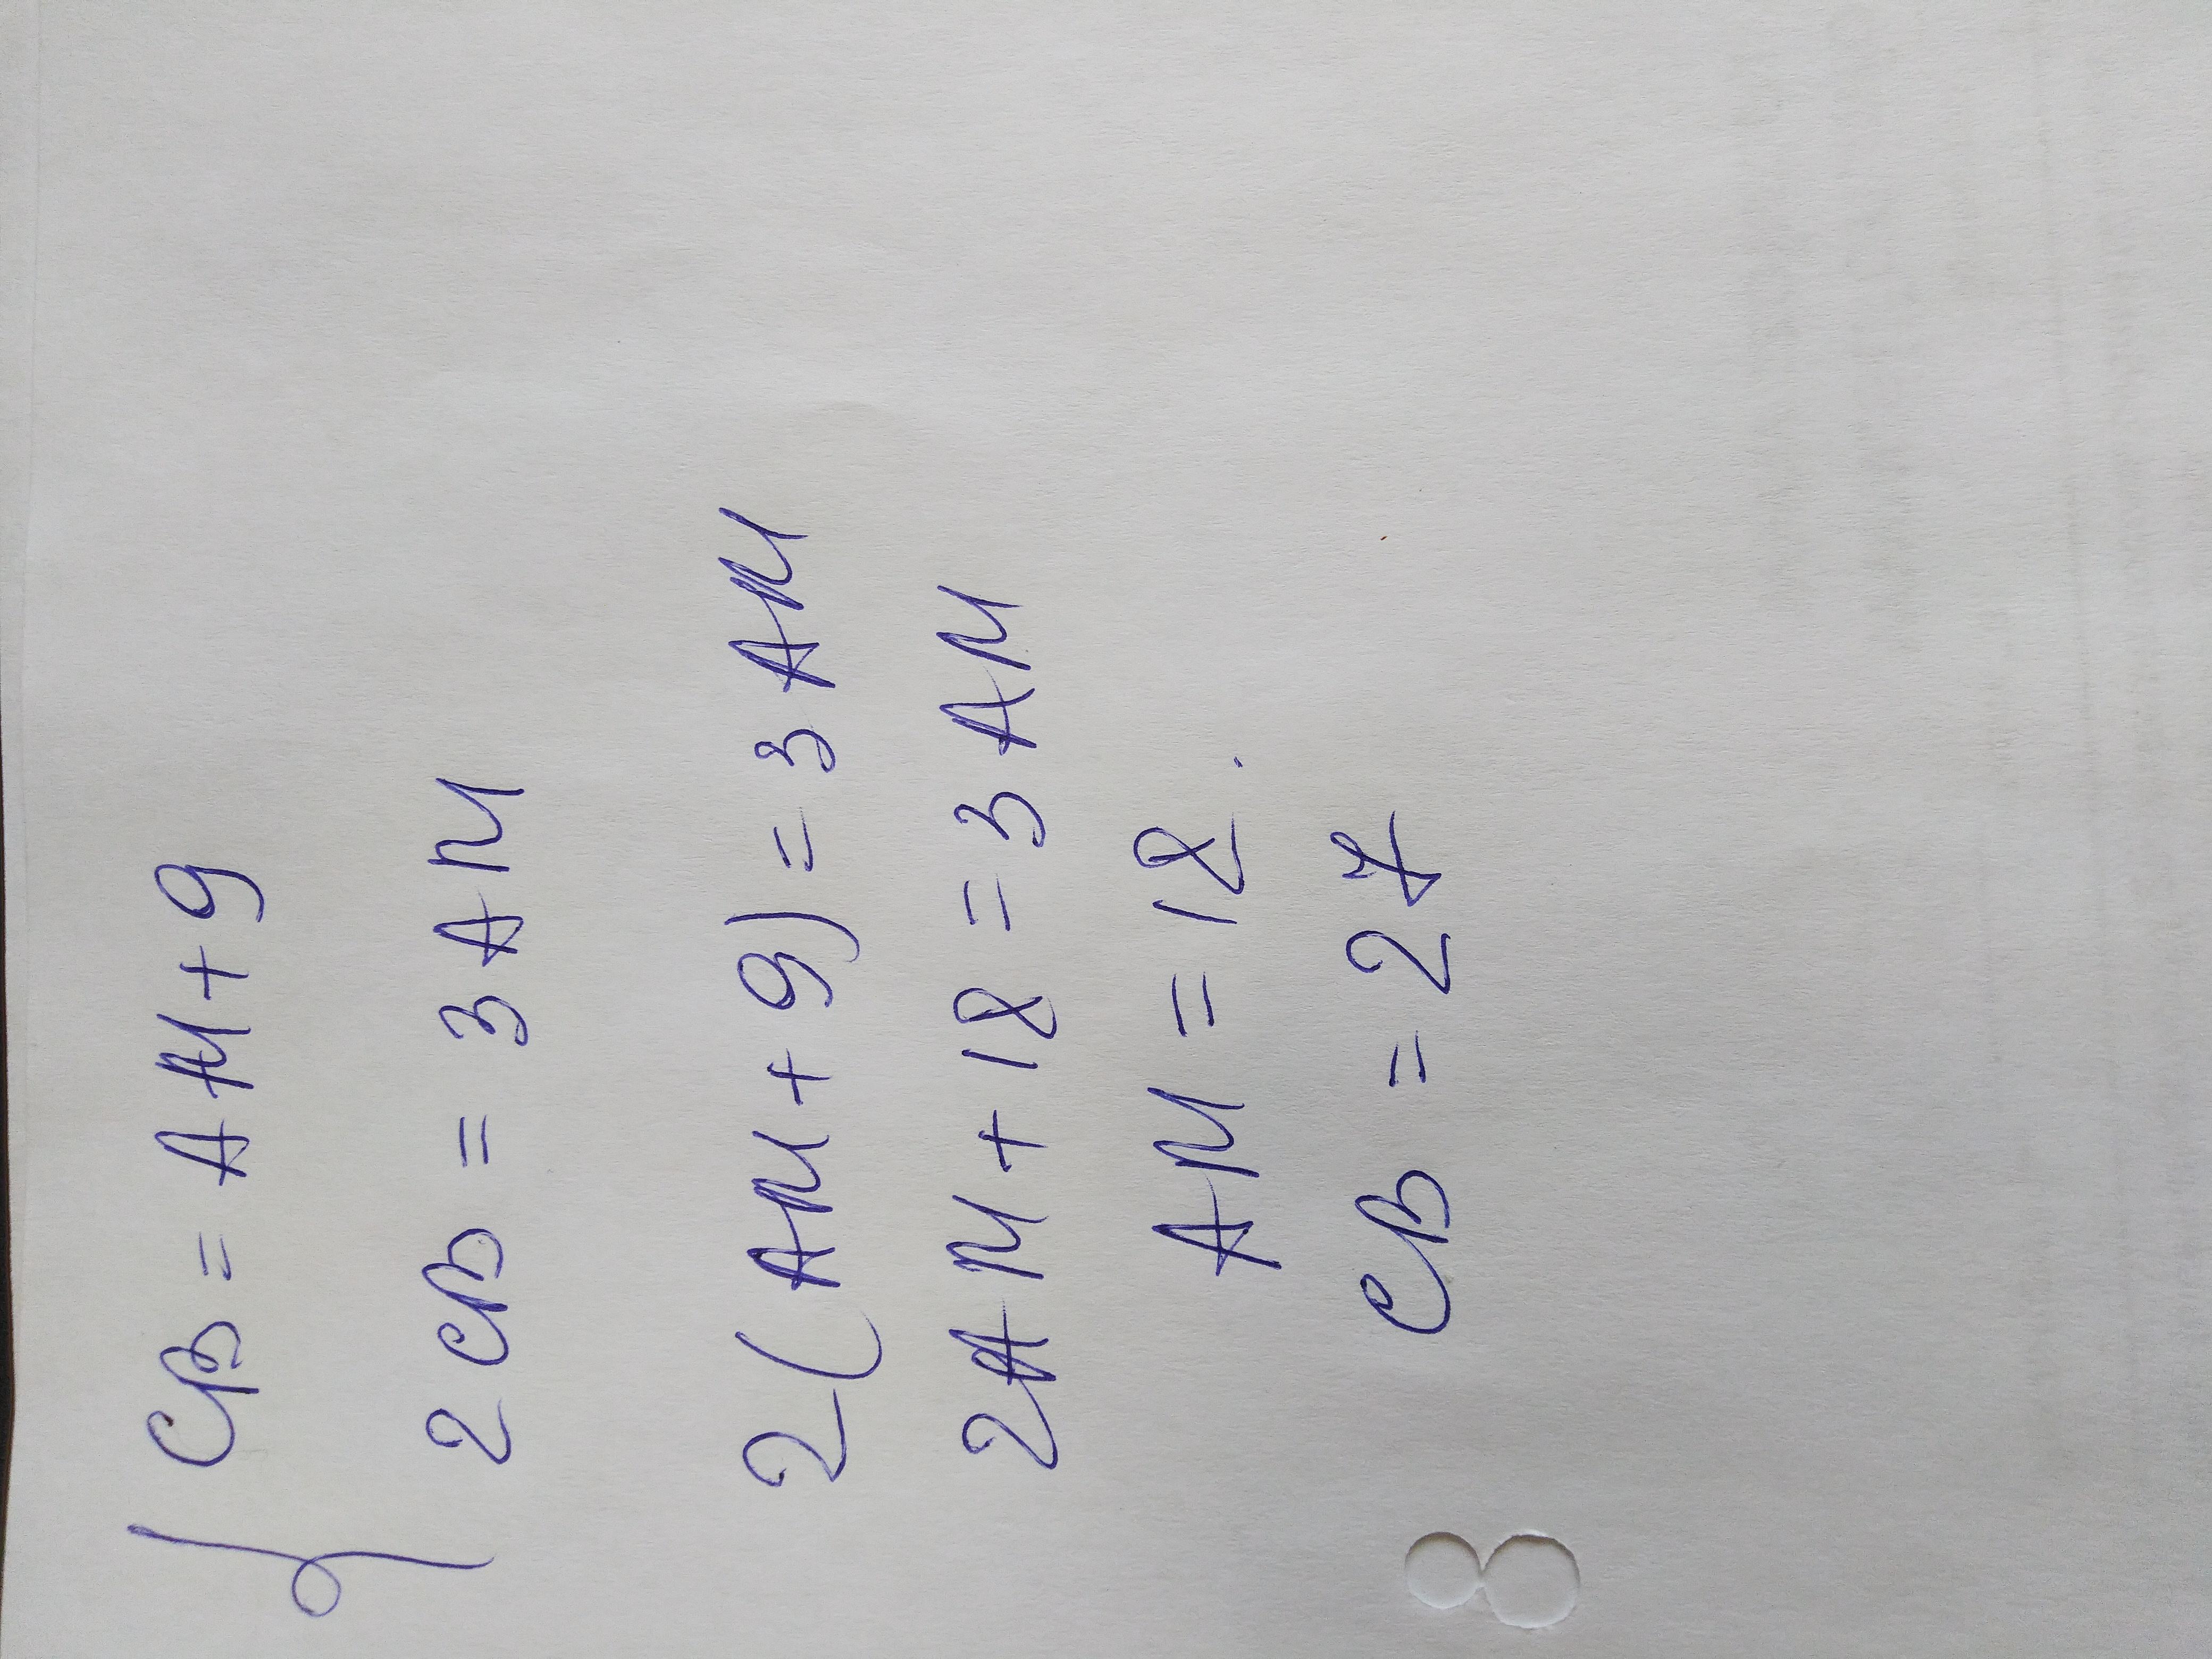 { CB = AM + 9
2 CB = 3 AM
2(AM + 9) = 3 AM
2AM + 18 = 3 AM
AM = 18.
CB = 27